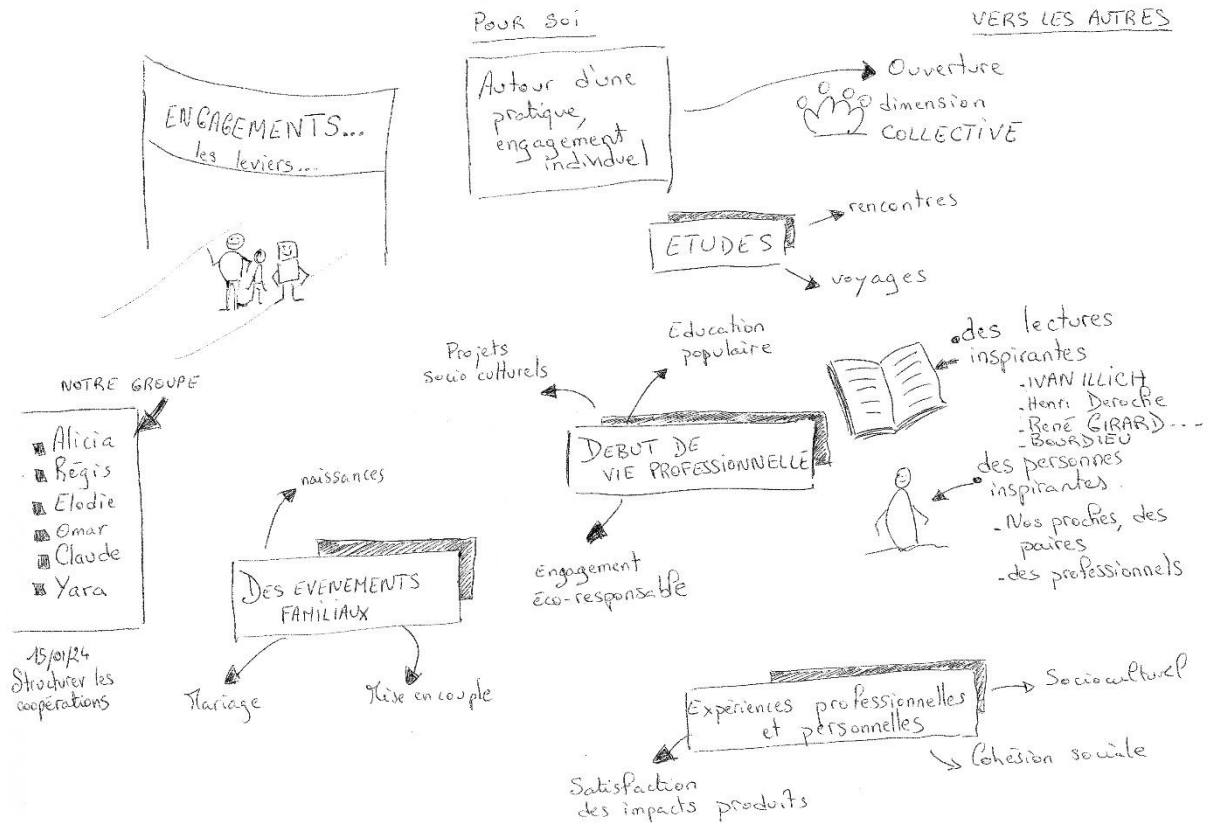 POUR SOI
VERS LES AUTRES
ENGAGEMENTS...
les leviers...
Autour d'une
pratique,
engagement
individuel
Ouverture
dimension
COLLECTIVE
ETUDES
rencontres
voyages
NOTRE GROUPE
Alicia
Régis
Elodie
Omar
Claude
Yara
15/01/24
Structurer les
coopérations
Projets
socio culturels
Education
populaire
DEBUT DE
VIE PROFESSIONNELLE
Engagement
éco-responsable
.des lectures
inspirantes
-IVAN ILLICH
-Henri Deroche
-René GIRARD...
-BOURDIEU
.des personnes
inspirantes.
-Nos proches, des
paires
-des professionnels
naissances
DES EVENEMENTS
FAMILIAUX
Mariage
Mise en couple
Expériences professionnelles
et personnelles
Socioculturel
Cohésion sociale
Satisfaction
des impacts produits